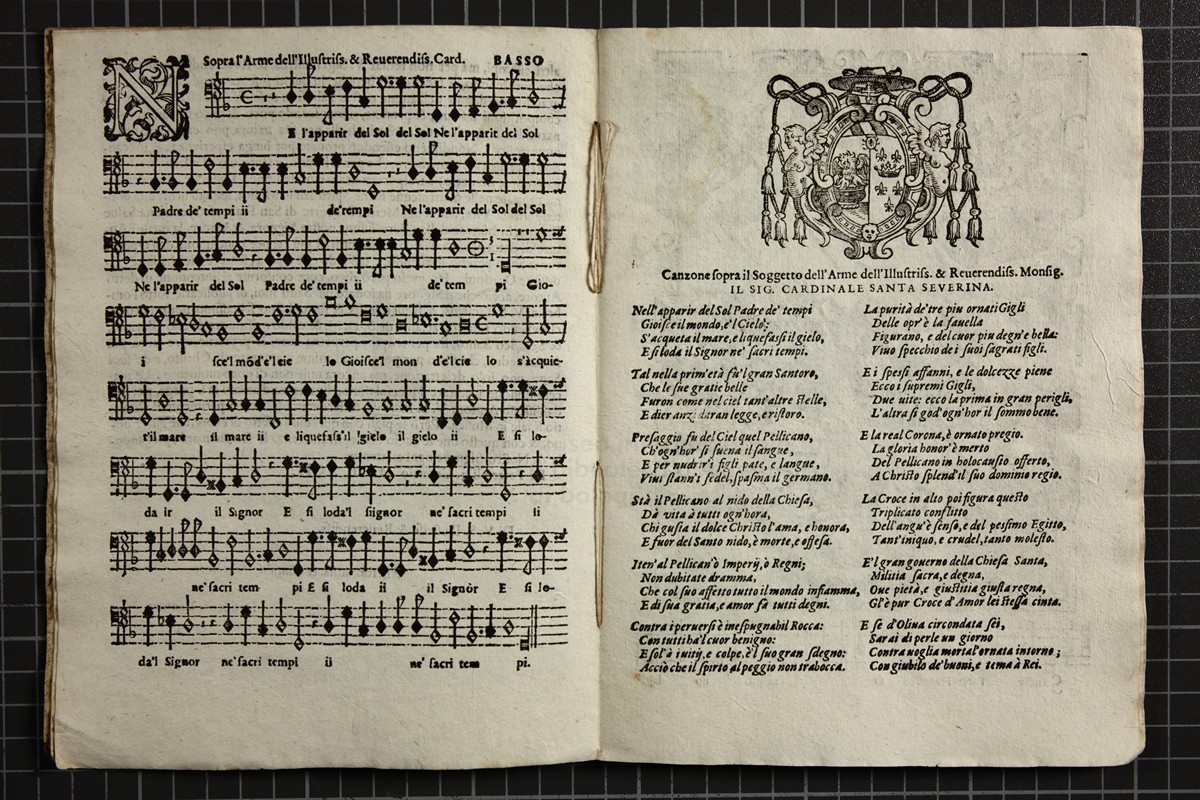 Sopra l'Arme dell'Illuſtriſs. & Reuerendiſs. Card. BASSO
N E l'apparir del Sol del Sol Ne l'apparir del Sol
Padre de' tempi ii de' tempi Ne l'apparir del Sol del Sol
Ne l'apparir del Sol Padre de' tempi ii de' tem pi Gio-
i ſce'l mōd'e'l cie lo Gioiſce'l mon d'e'l cie lo s'àcquie-
t'il mare il mare ii e liquefaſs'il gielo il gielo ii E ſi lo-
da ir il Signor E ſi loda'l ſiignor ne' ſacri tempi ii
ne' ſacri tem pi E ſi loda ii il Signòr E ſi lo-
da'l Signor ne' ſacri tempi ii ne' ſacri tem pi.
Canzone ſopra il Soggetto dell'Arme dell'Illuſtriſs. & Reuerendiſs. Monſig.
IL SIG. CARDINALE SANTA SEVERINA.
Nell'apparir del Sol Padre de' tempi
Gioiſce il mondo, e'l Cielo;
S'acqueta il mare, e liquefaſſi il gielo,
E ſi loda il Signor ne' ſacri tempi.
Tal nella prim'età fù'l gran Santoro,
Che le ſue gratie belle
Furon come nel ciel tant'altre ſtelle,
E dier anzi daran legge, e riſtoro.
Preſaggio fu del Ciel quel Pellicano,
Ch'ogn'hor ſi ſuena il ſangue,
E per nudrir'i figli pate, e langue,
Viui ſtann'i fedel, ſpaſma il germano.
Stà il Pellicano al nido della Chieſa,
Dà vita à tutti ogn'hora,
Chi guſta il dolce Chriſto l'ama, e honora,
E fuor del Santo nido, è morte, e offeſa.
Iten'al Pellican'ò Imperÿ, ò Regni;
Non dubitate dramma,
Che col ſuo affetto tutto il mondo infiamma,
E di ſua gratia, e amor fa tutti degni.
Contra i peruerſi è ineſpugnabil Rocca:
Con tutti ha'l cuor benigno:
E ſol'à i uitÿ, e colpe, è'l ſuo gran ſdegno:
Acciò che il ſpirto al peggio non trabocca.
La purità de' tre piu ornati Gigli
Delle opr'è la fauella
Figurano, e del cuor piu degn'e bella:
Viuo ſpecchio de i ſuoi ſagrati figli.
E i ſpeſſi affanni, e le dolcezze piene
Ecco i ſupremi Gigli,
Due uite: ecco la prima in gran perigli,
L'altra ſi god'ogn'hor il ſommo bene.
E la real Corona, è ornato pregio.
La gloria honor'è merto
Del Pellicano in holocauſto offerto,
A Chriſto ſplend'il ſuo dominio regio.
La Croce in alto poi figura queſto
Triplicato conflitto
Dell'angu'è ſenſo, e del peſſimo Egitto,
Tant'iniquo, e crudel, tanto moleſto.
E'l gran gouerno della Chieſa Santa,
Militia ſacra, e degna,
Oue pietà, e giuſtitia giuſta regna,
Gl'è pur Croce d'Amor lei ſteſſa cinta.
E ſe d'Oliua circondata ſei,
Sarai di perle un giorno
Contra uoglia mortal'ornata intorno;
Con giubilo de' buoni, e tema à Rei.